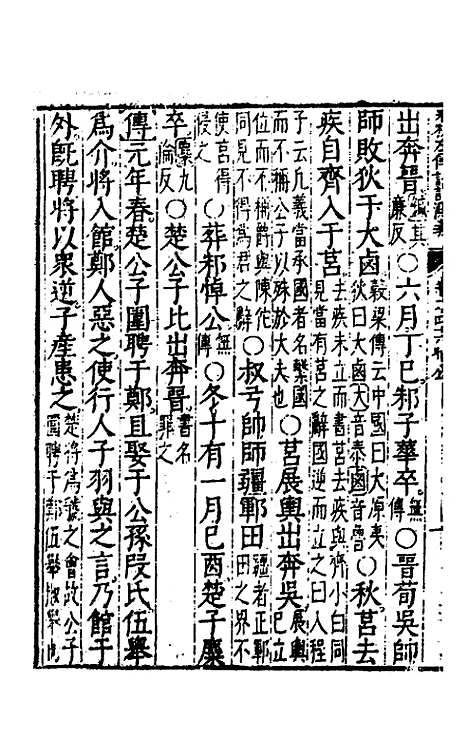 出奔晉鍼其廉反○六月丁巳邾子華卒無傳○晉荀吳帥
師敗狄于大鹵穀梁傳云中國曰大原夷狄曰大鹵大音泰鹵音魯○秋莒去
疾自齊入于莒去疾未立而書莒去疾與齊小白同見當有莒之辭國逆而立之曰入程
子云凡義當承國者名繫國而不稱公子以殊於大夫也○莒展輿出奔吳展輿已立
位而不稱爵與陳佗同見不得為君之辭○叔弓帥師疆鄆田疆者正鄆田之界不
使莒得侵之○葬邾悼公無傳○冬十有一月己酉楚子麇
卒麇九倫反○楚公子比出奔晉書名罪之
傳元年春楚公子圍聘于鄭且娶于公孫段氏伍舉
為介將入館鄭人惡之使行人子羽與之言乃館于
外既聘將以衆逆子產患之楚將為虢之會故公子圍聘于鄭伍舉椒舉也